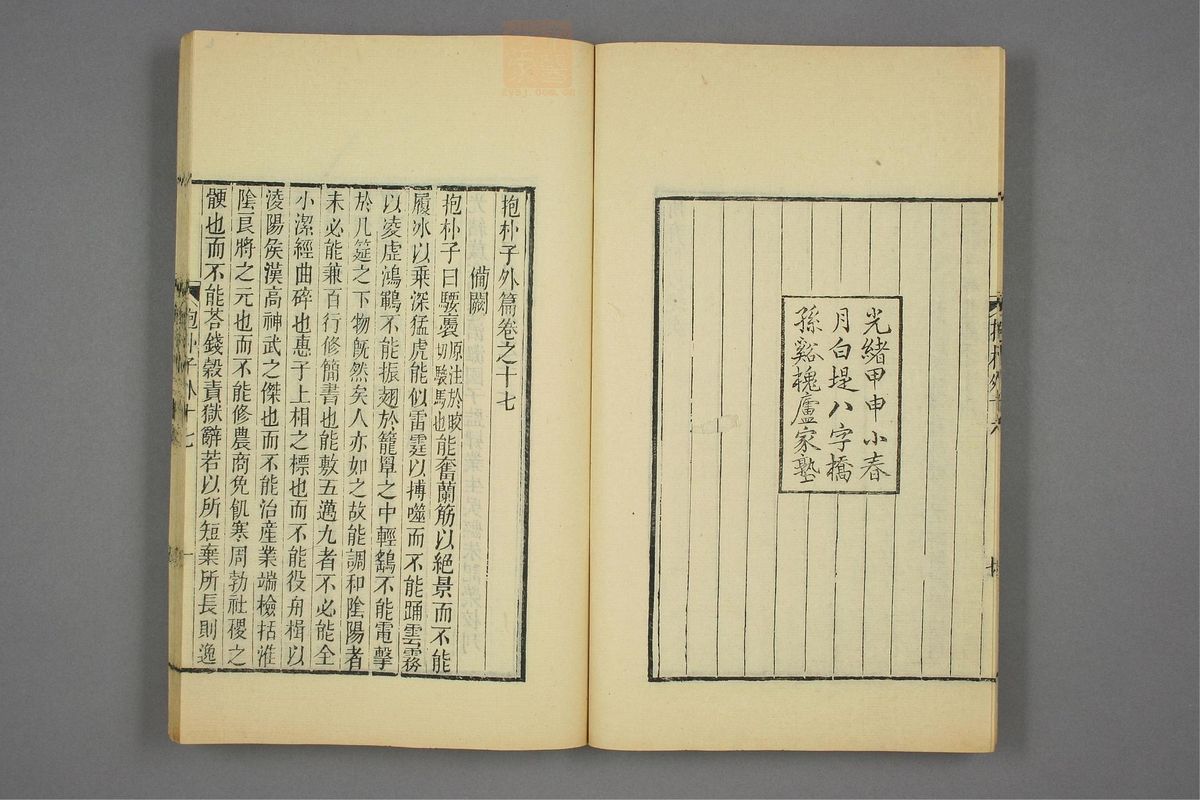 光緒甲申小春
月白堤八字橋
孫谿槐廬家塾
抱朴子外篇卷之十七
備闕
抱朴子曰騕褭原注於皎切駿馬也能奮蘭筋以絕景而不能
履冰以乘深猛虎能似雷霆以搏噬而不能踊雲霧
以凌虛鴻鶤不能振翅於籠罩之中輕鷂不能電擊
於几筵之下物旣然矣人亦如之故能調和陰陽者
未必能兼百行修簡書也能敷五邁九者不必能全
小潔經曲碎也惠子上相之標也而不能役舟楫以
淩陽侯漢高神武之傑也而不能治產業端檢括淮
陰良將之元也而不能修農商免飢寒周勃社稷之
骾也而不能荅錢穀責獄辭若以所短棄所長則逸
抱朴子外十七